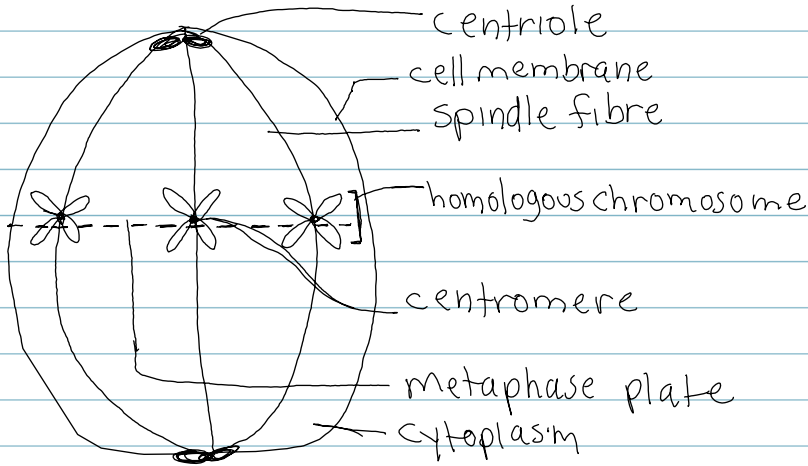 centriole
cell membrane
spindle fibre
homologous chromosome
centromere
metaphase plate
cytoplasm